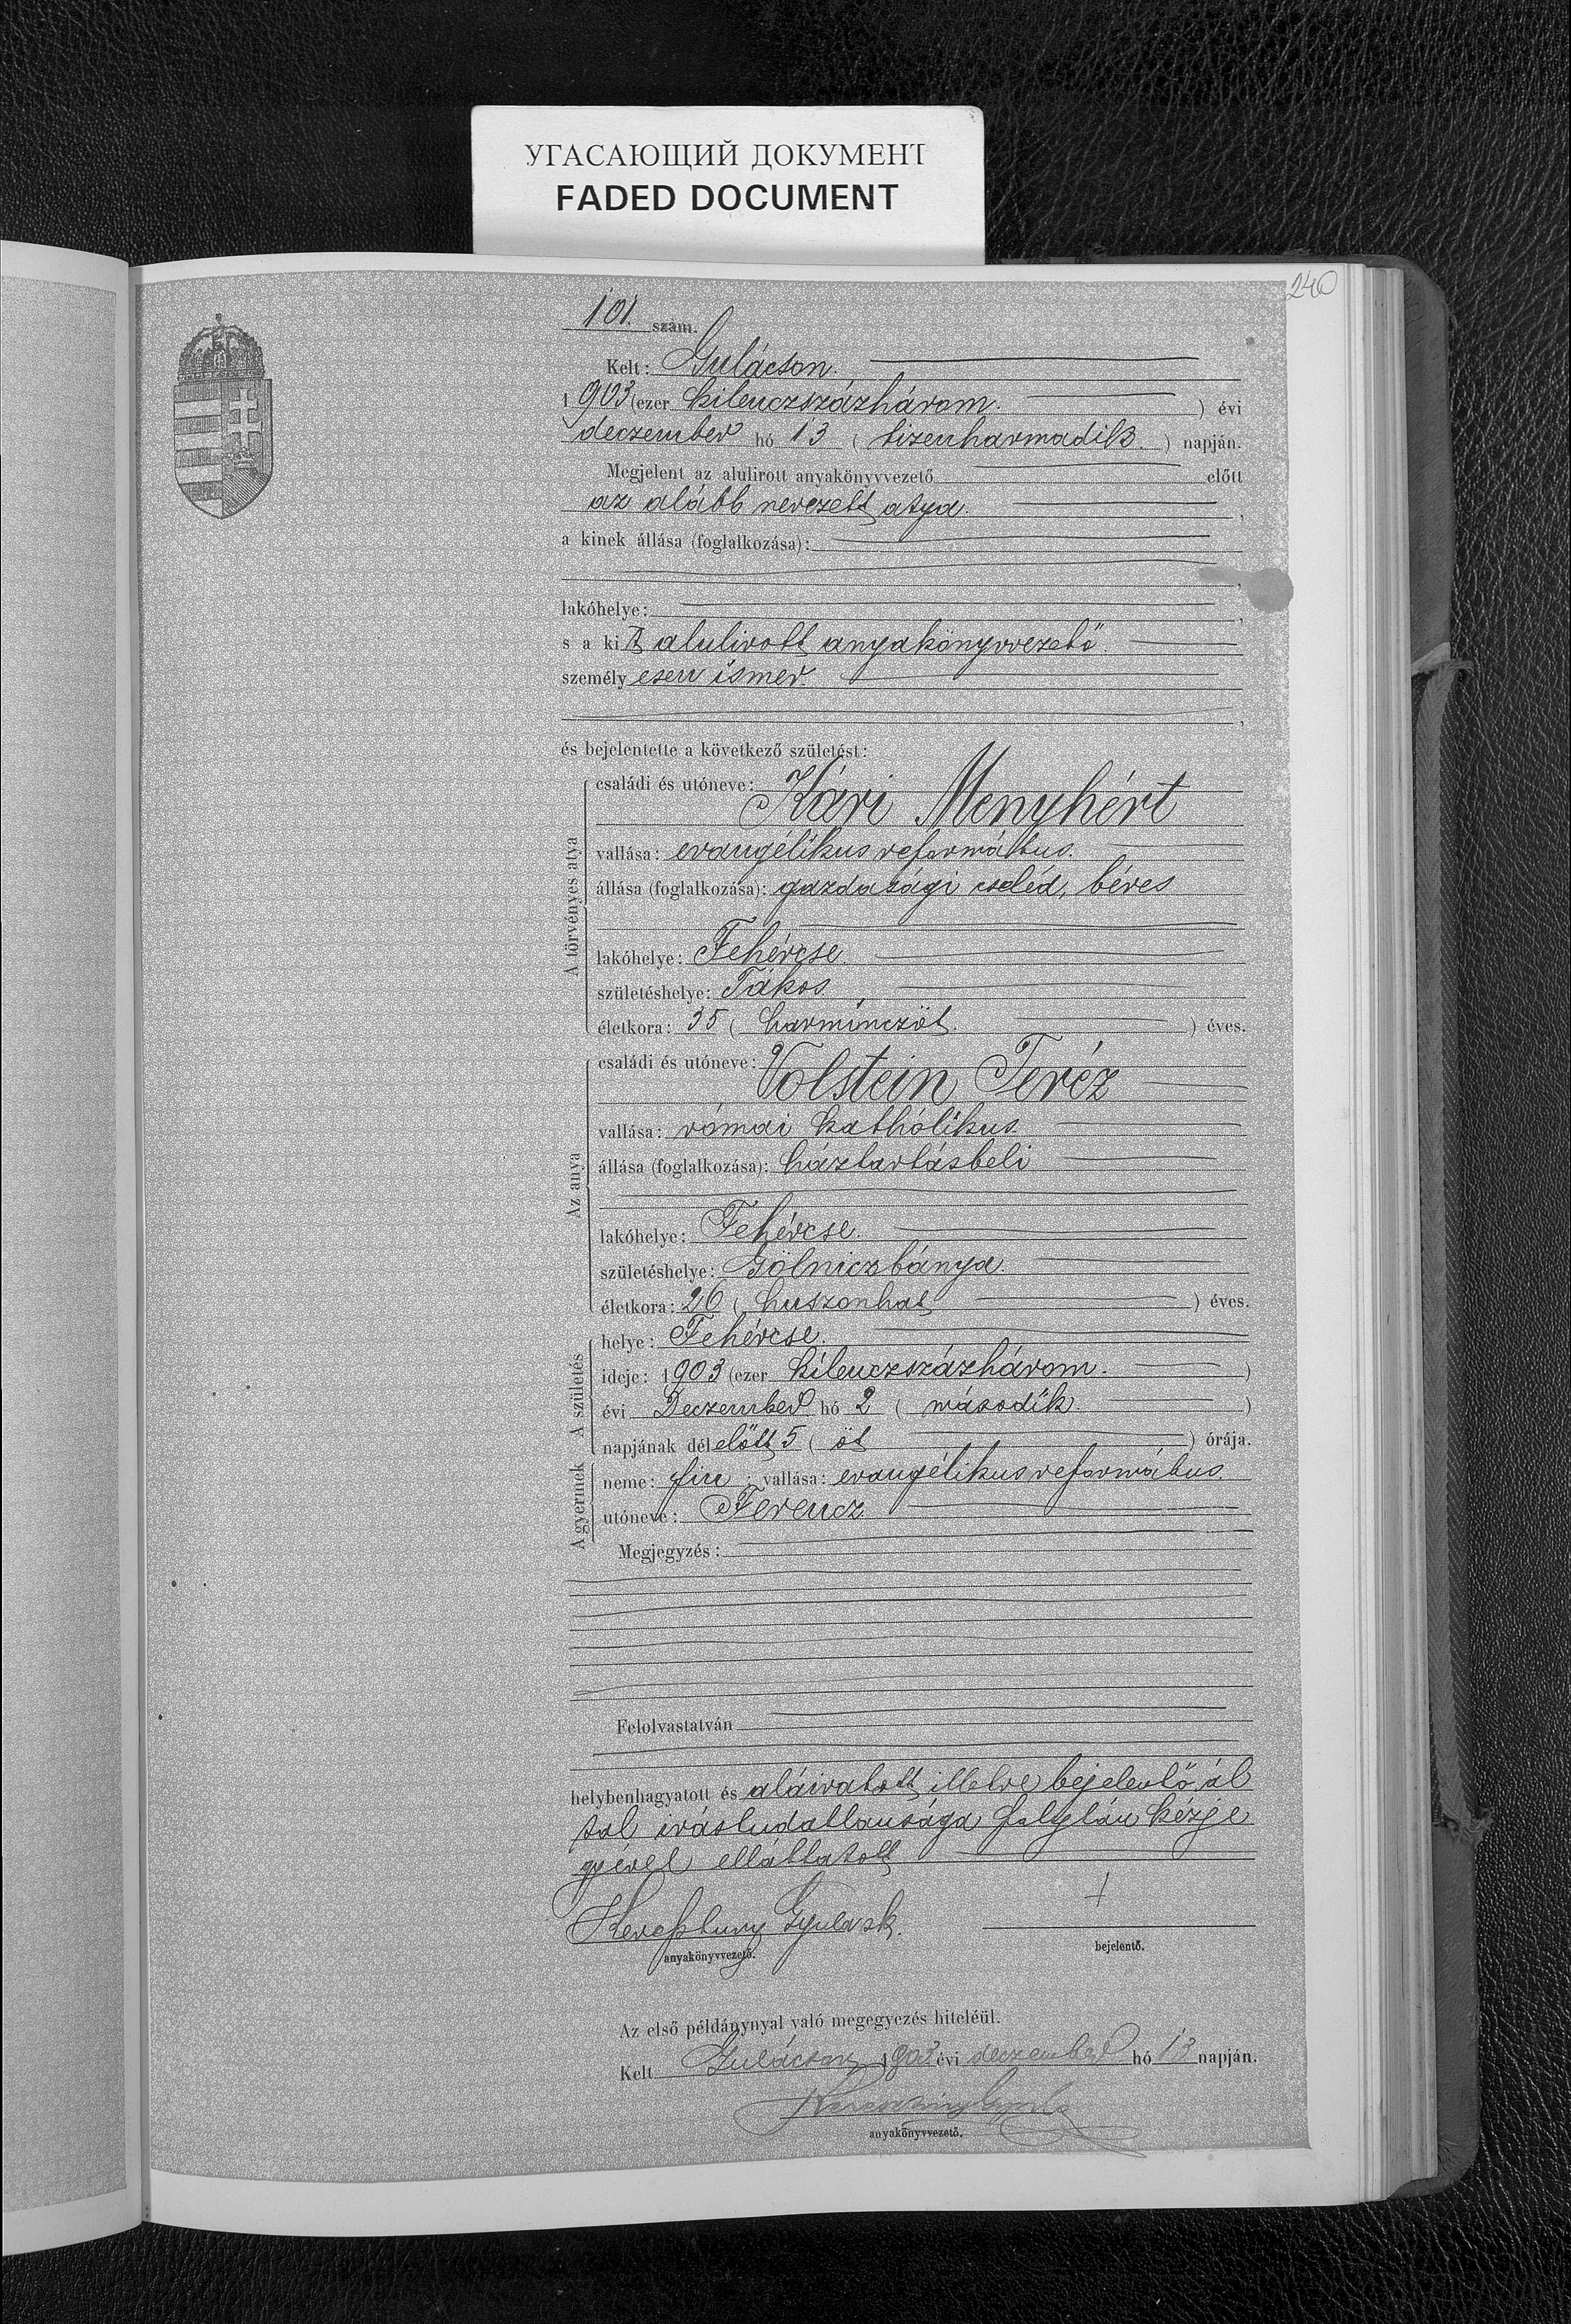 УГАСАЮЩИЙ ДОКУМЕНТ
FADED DOCUMENT
240
101. szám.
Kelt: Gulácson.
1903 (ezer kilenczszázhárom.) évi
deczember hó 13 (tizenharmadik.) napján.
Megjelent az alulirott anyakönyvvezető előtt
az alább nevezett atya.,
a kinek állása (foglalkozása):
,
lakóhelye: ,
s a kit alulirott anyakönyvvezető.
személyesen ismer.
,
és bejelentette a következő születést:
A törvényes atya
családi és utóneve:
Kári Menyhért
vallása: evangélikus református.
állása (foglalkozása): gazdasági cseléd, béres
lakóhelye: Fehércse.
születéshelye: Tákos.
életkora: 35 (harminczöt.) éves.
Az anya
családi és utóneve:
Volstein Teréz
vallása: római katholikus
állása (foglalkozása): háztartásbeli
lakóhelye: Fehércse.
születéshelye: Gölniczbánya.
életkora: 26 (huszonhat) éves.
A születés
helye: Fehércse.
ideje: 1903 (ezer kilenczszázhárom.)
évi Deczember hó 2 (második.)
napjának délelőtt 5 (öt) órája.
A gyermek
neme: fiu; vallása: evangélikus református.
utóneve: Ferencz
Megjegyzés:
Felolvastatván
helybenhagyatott és aláiratott illetve bejelentő ál
tal irástudatlansága folytán kézje
gyével elláttatott
Keresztury Gyula sk. +
anyakönyvvezető. bejelentő.
Az első példánynyal való megegyezés hiteléül.
Kelt Gulácson 1903 évi deczember hó 13 napján.
Keresztury Gyula
anyakönyvvezető.